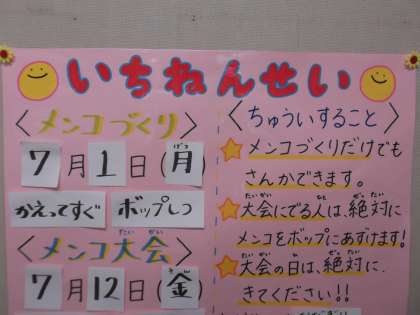 いちねんせい
〈メンコづくり〉
7月1日(月)
げつ
かえってすぐ ポップしつ
〈メンコ大会〉
たいかい
7月12日(金)
きん
〈ちゅういすること〉
メンコづくりだけでも
さんかできます。
大会にでる人は、絶対に
たいかい ぜったい
メンコをポップにあずけます!
大会の日は、絶対に、
たいかい ぜったい
きてください!!